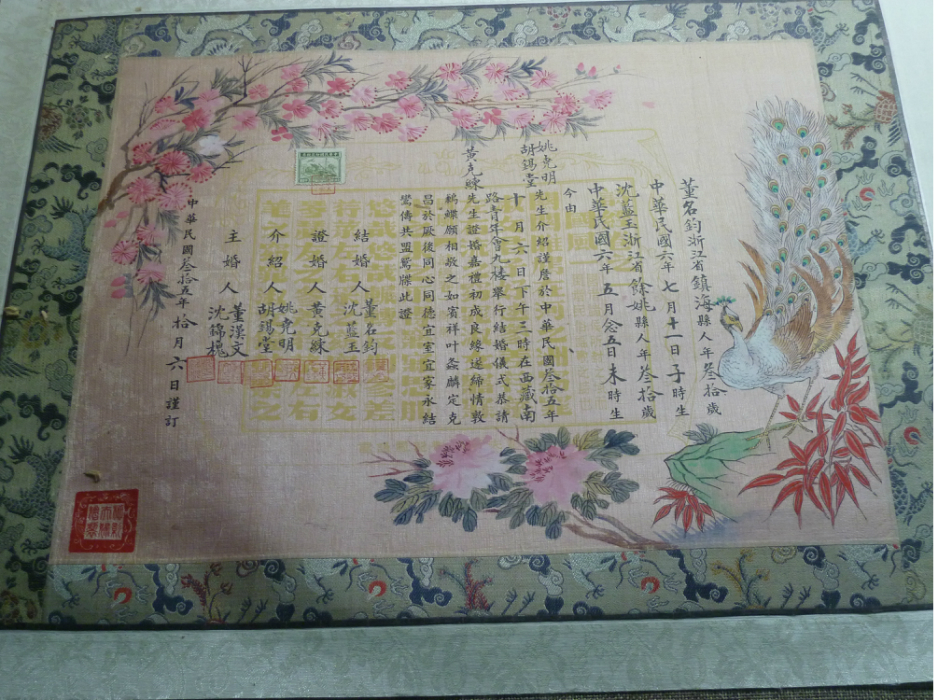 董名鈞浙江省鎮海縣人年叁拾歲
中華民國六年七月十一日子時生
沈藍玉浙江省餘姚縣人年叁拾歲
中華民國六年五月念五日未時生
今由
姚克明
胡錫堂
先生介紹謹詹於中華民國叁拾五年
十月六日下午三時在西藏南
路青年會九樓舉行結婚儀式恭請
黃克
先生證婚嘉禮初成良緣遂締情敦
鶼鰈願相敬之如賓祥叶螽麟定克
昌於厥後同心同德宜室宜家永結
鸞儔共盟鴛牒此證
結婚人
董名鈞
沈藍玉
證婚人
黃克
介紹人
姚克明
胡錫堂
主婚人
董漢文
沈錦槐
中華民國叁拾五年拾月六日謹訂